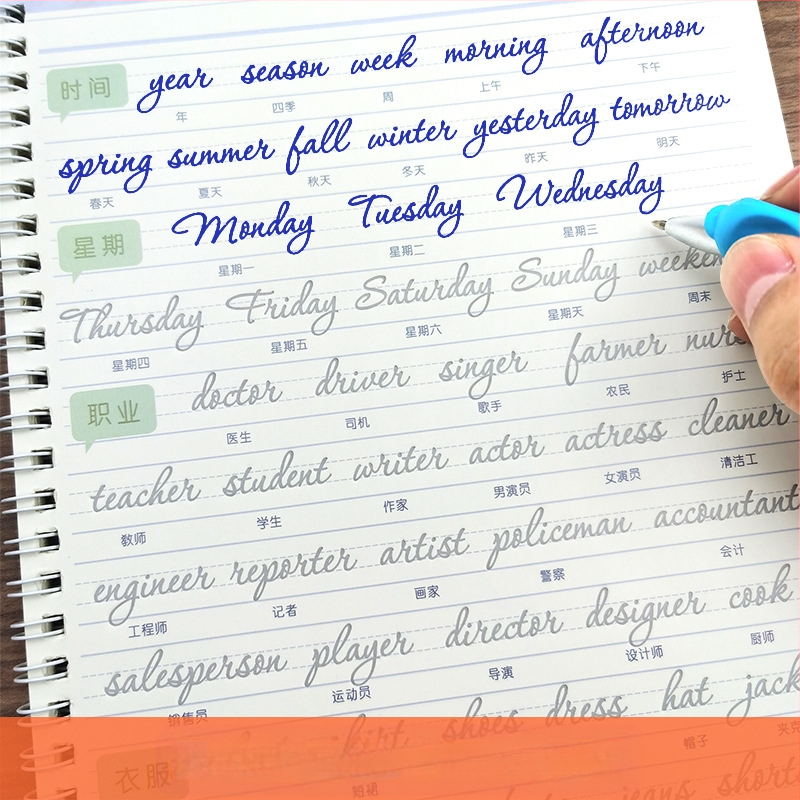 时间 year season week morning afternoon
年 四季 周 上午 下午
spring summer fall winter yesterday tomorrow
春天 夏天 秋天 冬天 昨天 明天
星期 Monday Tuesday Wednesday
星期一 星期二 星期三
Thursday Friday Saturday Sunday weeken
星期四 星期五 星期六 星期天 周末
职业 doctor driver singer farmer nurs
医生 司机 歌手 农民 护士
teacher student writer actor actress cleaner
教师 学生 作家 男演员 女演员 清洁工
engineer reporter artist policeman accountant
工程师 记者 画家 警察 会计
salesperson player director designer cook
销售员 运动员 导演 设计师 厨师
shoes dress hat jack
帽子 夹克
衣服 jeans short
短裙